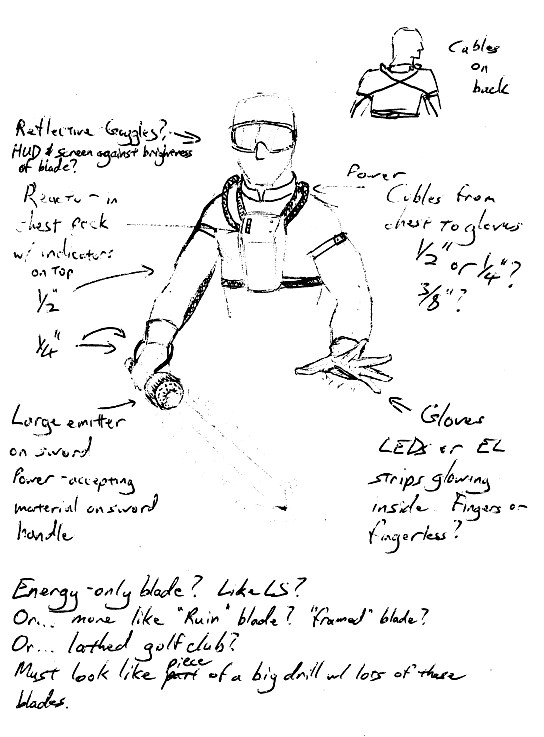 Cables
on
back
Reflective Goggles?
HUD & screen against brightness
of blade?
Reactor in
chest pack
w/ indicators
on top
1/2"
1/4"
Power
Cables from
chest to gloves
1/2" or 1/4"?
3/8"?
Large emitter
on sword
Power-accepting
material on sword
handle
Gloves
LEDs or EL
strips glowing
inside. Fingers or
fingerless?
Energy-only blade? Like LS?
Or... more like "Ruin" blade? "framed" blade?
Or... lathed golf club?
Must look like part piece of a big drill w/ lots of these
blades.